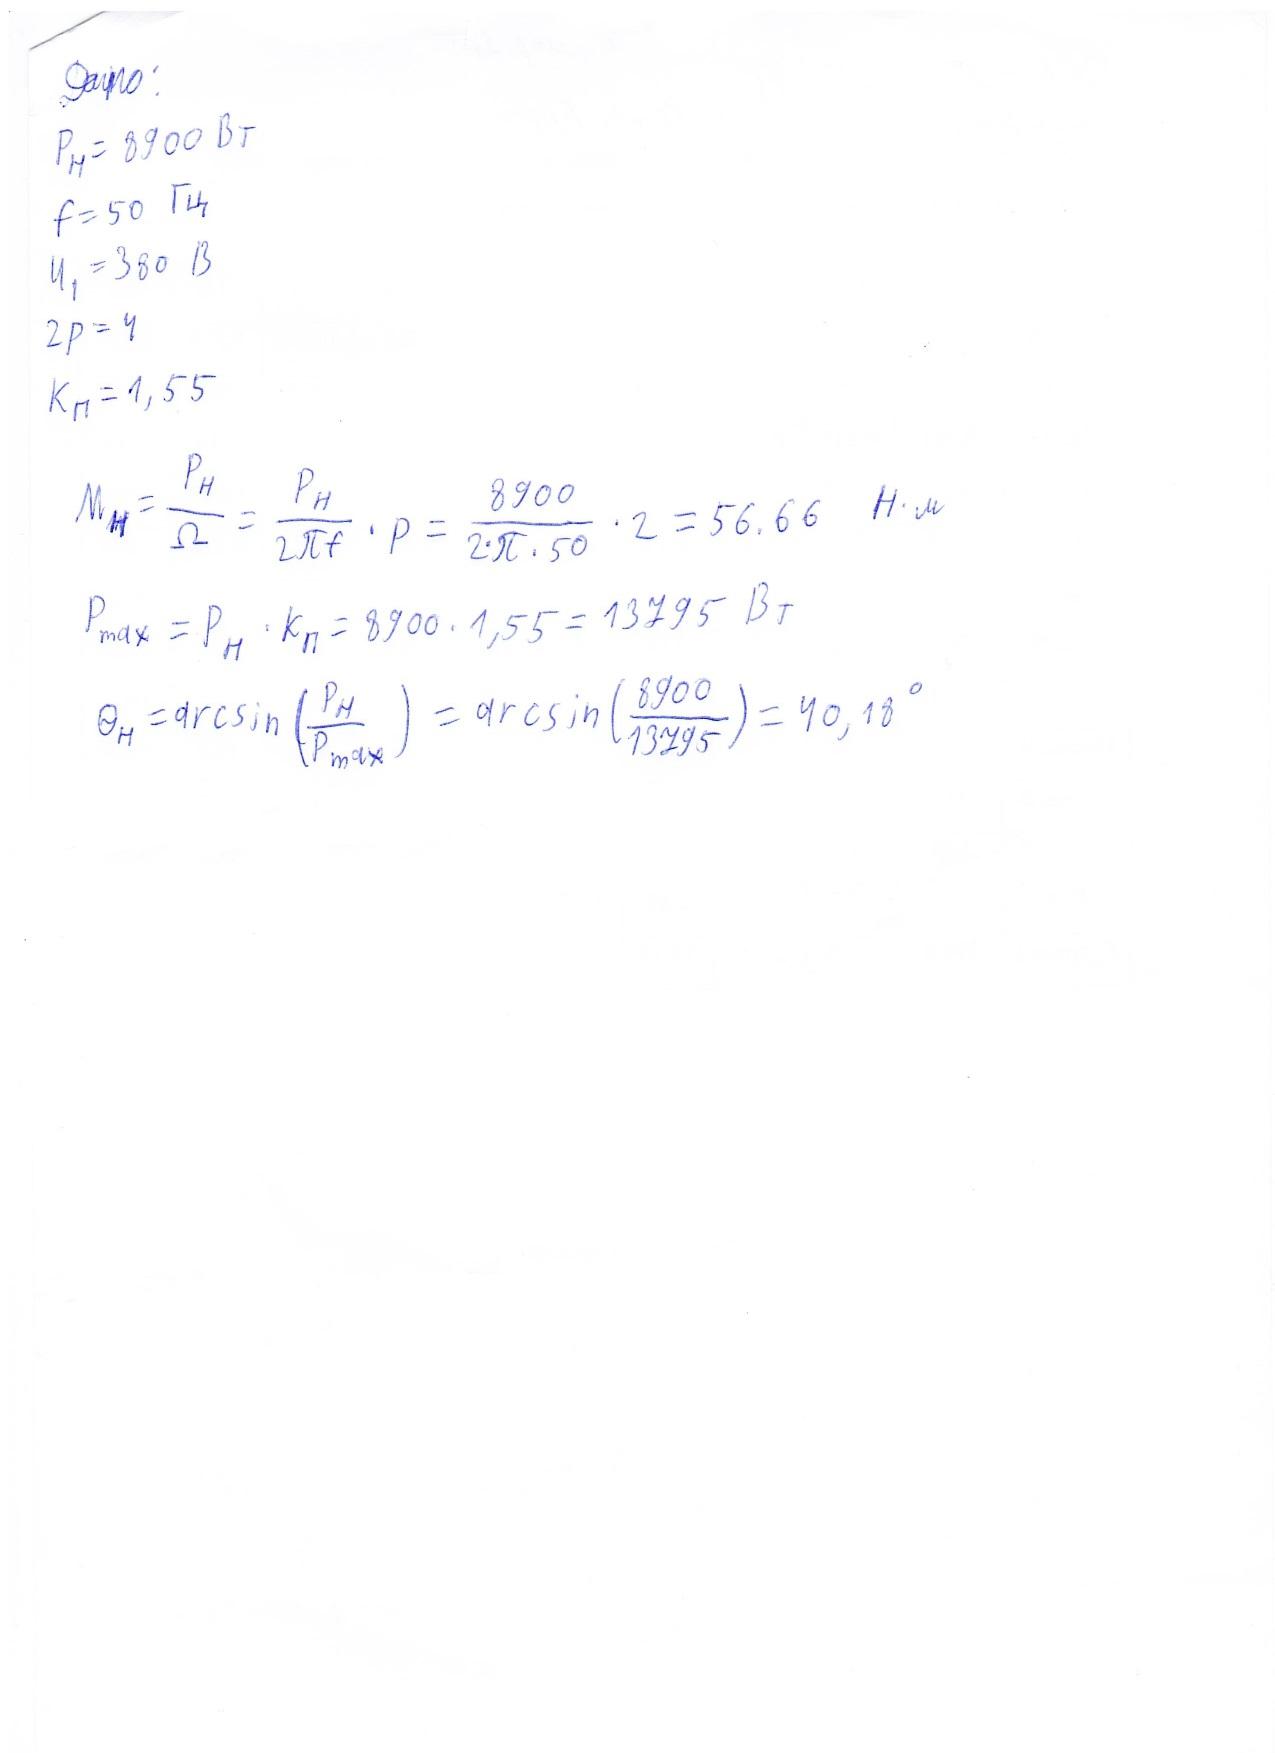 Дано:
Pн = 8900 Вт
f = 50 Гц
U₁ = 380 В
2p = 4
Kп = 1,55
Mн = Pн/Ω = Pн/2πf · p = 8900/2·π·50 · 2 = 56.66 Н·м
Pmax = Pн · Kп = 8900 · 1,55 = 13795 Вт
Θн = arcsin(Pн/Pmax) = arcsin(8900/13795) = 40,18°